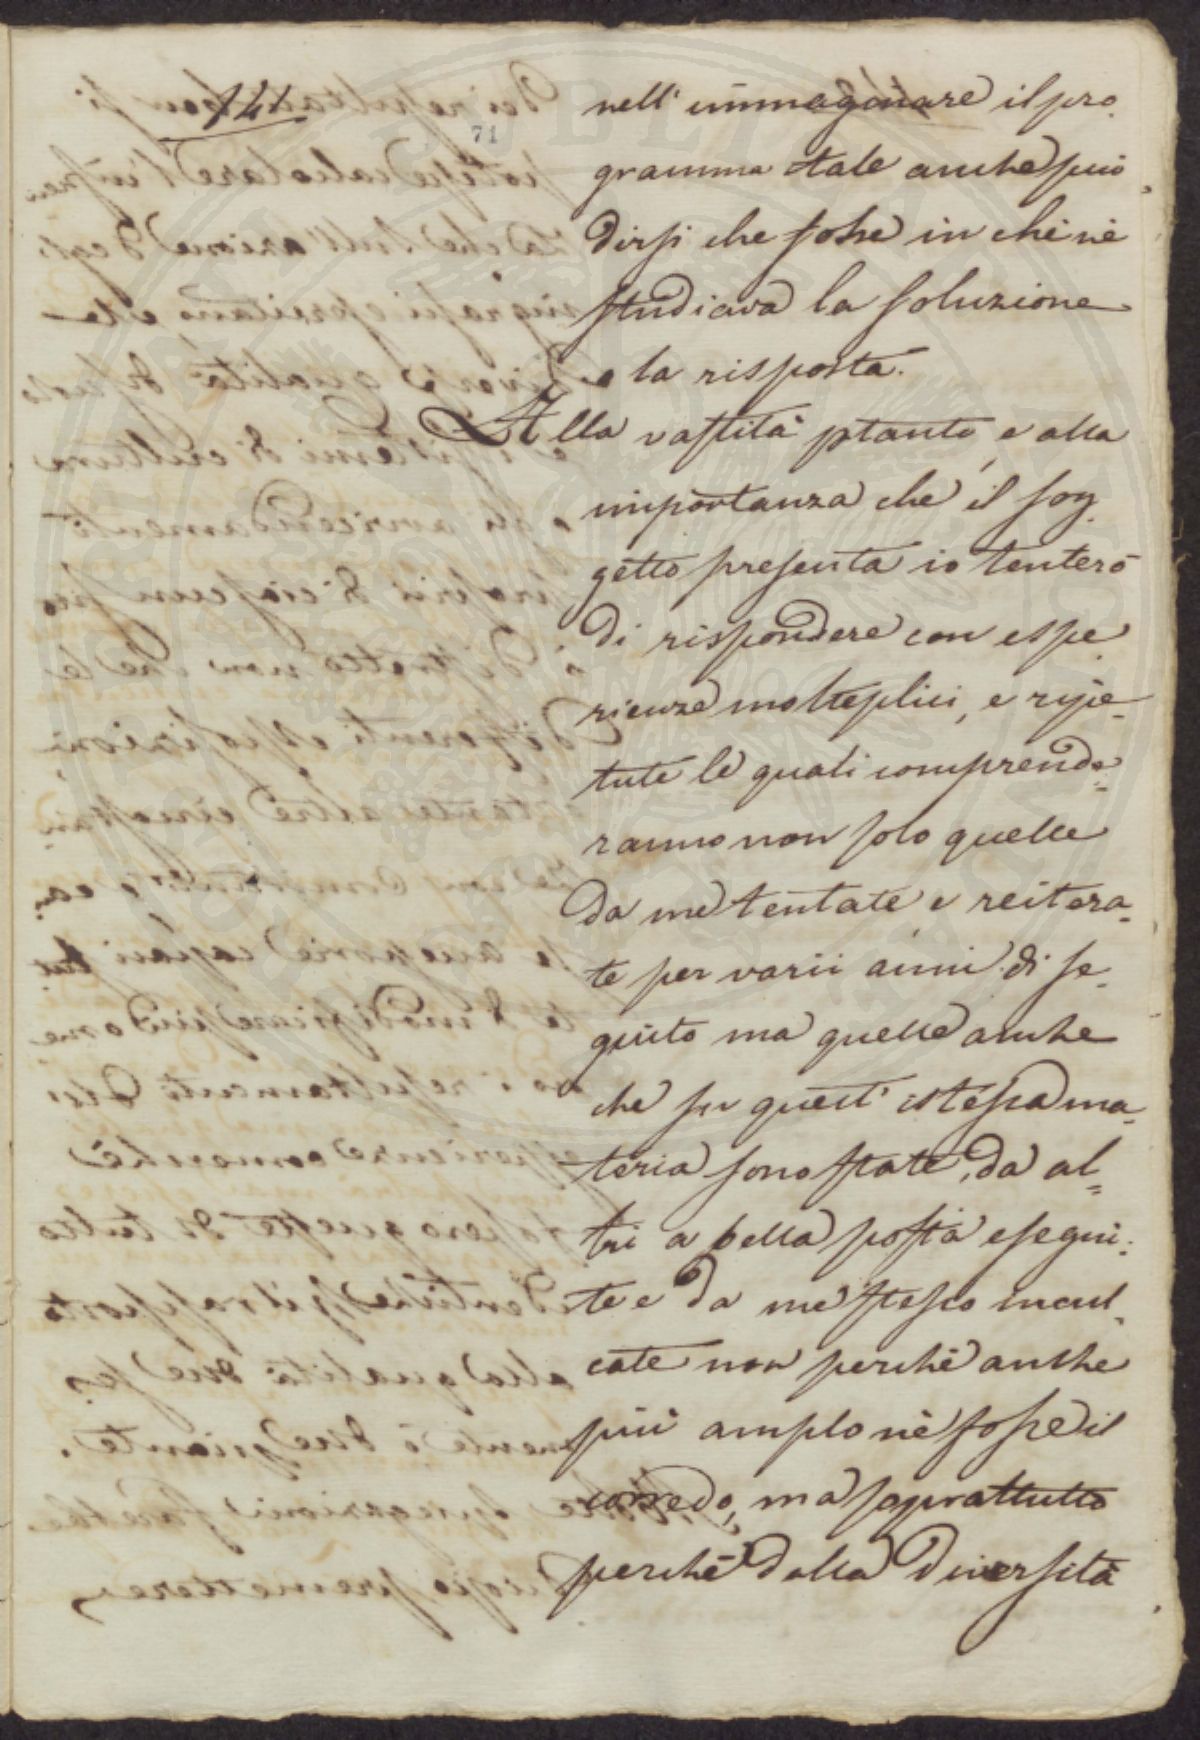 141
71
nell' immaginare il pro
gramma tale anche può
dirsi che fosse in chi nè
studiava la soluzione
e la risposta.
Alla vastità ptanto, e alla
importanza che il sog
getto presenta io tenterò
di rispondere con espe
rienze molteplici, e ripe-
tute le quali comprende-
ranno non solo quelle
da me tentate e reitera-
te per varii anni di se-
guito ma quelle anche
che su quest' istessa ma-
teria sono state, da al-
tri a bella posta esegui-
te e da me stesso incul-
cate non perchè anche
più amplo nè fosse il
corredo, ma soprattutto
perchè dalla diversità